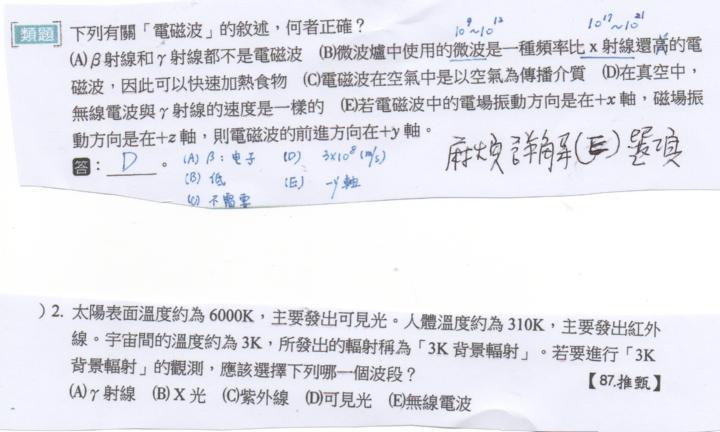 類題 下列有關「電磁波」的敘述,何者正確?
10⁹~10¹² 10¹⁷~10²¹
(A)β射線和γ射線都不是電磁波 (B)微波爐中使用的微波是一種頻率比 x 射線還高的電
磁波,因此可以快速加熱食物 (C)電磁波在空氣中是以空氣為傳播介質 (D)在真空中,
無線電波與γ射線的速度是一樣的 (E)若電磁波中的電場振動方向是在+x 軸,磁場振
動方向是在+z 軸,則電磁波的前進方向在+y 軸。
答: D 。 (A) β:电子 (D) 3×10⁸ (m/s)
(B) 低 (E) -y 軸
(C) 不需要
麻煩詳解(E)選項
)2. 太陽表面溫度約為 6000K,主要發出可見光。人體溫度約為 310K,主要發出紅外
線。宇宙間的溫度約為 3K,所發出的輻射稱為「3K 背景輻射」。若要進行「3K
背景輻射」的觀測,應該選擇下列哪一個波段? 【87.推甄】
(A)γ射線 (B)X 光 (C)紫外線 (D)可見光 (E)無線電波